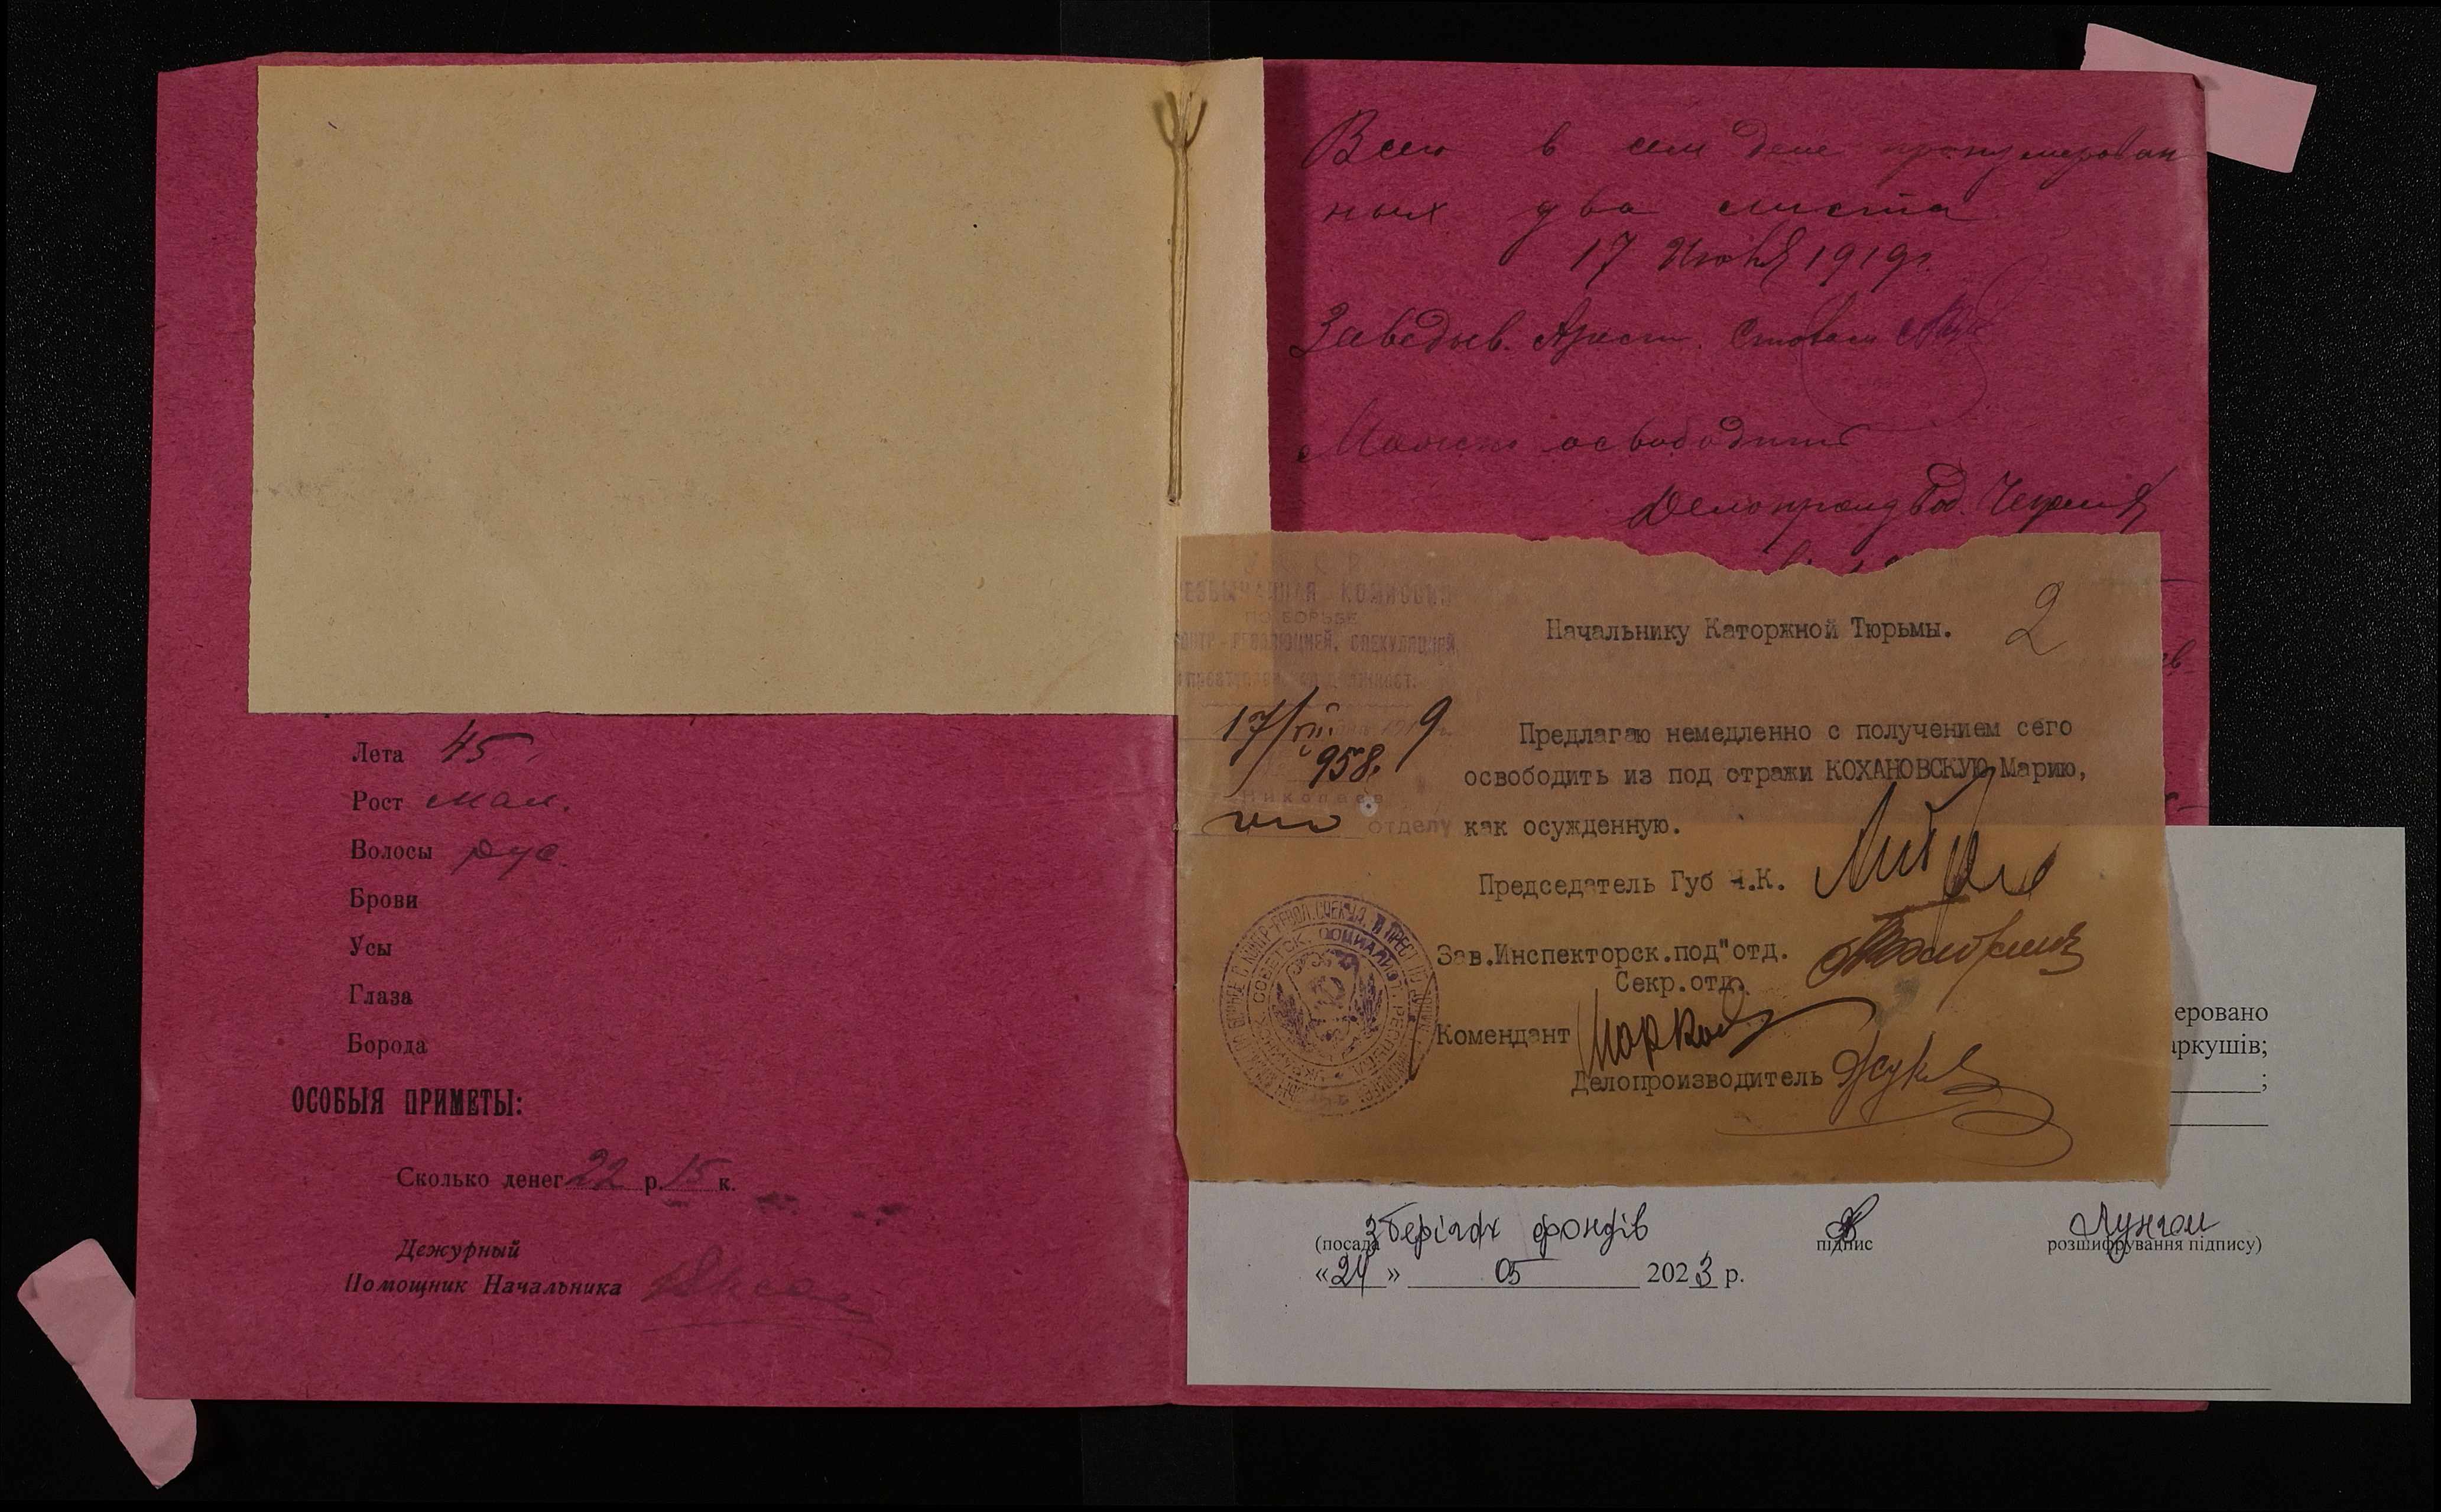 Лета 45
Рост мал.
Волосы рус.
Брови
Усы
Глаза
Борода
ОСОБЫЯ ПРИМЕТЫ:
Сколько денег 22 р. 15 к.
Дежурный
Помощник Начальника
Всего в сем деле пронумерован
ных два листа
17 Июля 1919 г.
Заведыв. Арест. Столом
Можно освободить
Делопроизвод.
ЕЗВЫЧАЙНАЯ КОМИССИЯ
ПО БОРЬБЕ
КОНТР-РЕВОЛЮЦИЕЙ, СПЕКУЛЯЦИЕЙ
17/VII 1919
958.
Николаев
отделу
Начальнику Каторжной Тюрьмы. 2
Предлагаю немедленно с получением сего
освободить из под стражи КОХАНОВСКУЮ Марию,
как осужденную.
Председатель Губ Ч.К.
Зав.Инспекторск.под"отд.
Секр.отд.
Комендант
Делопроизводитель
еровано
аркушів;
;
Зберігач фондів
(посада підпис розшифрування підпису)
«24» 05 2023 р.